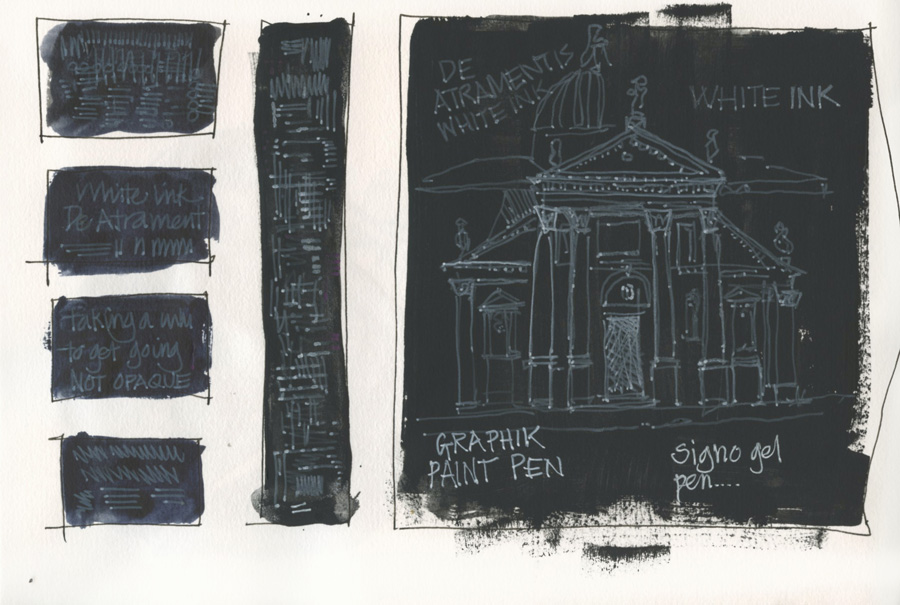 White ink
De Atrament
Taking a
to get going
NOT OPAQUE
DE
ATRAMENTIS
WHITE INK
WHITE INK
GRAPHIK
PAINT PEN
Signo gel
pen....